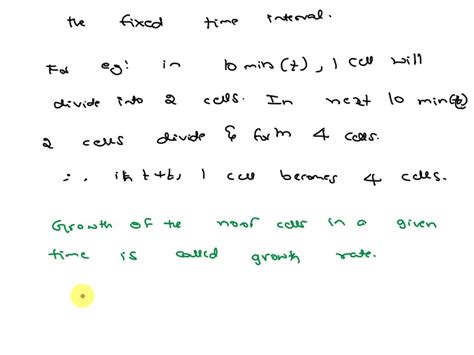 the fixed time interval.
For eg: in 10 min (t), 1 cell will
divide into 2 cells. In next 10 min(t)
2 cells divide & form 4 cells.
∴ in t+t, 1 cell becomes 4 cells.
Growth of the no of cells in a given
time is called growth rate.